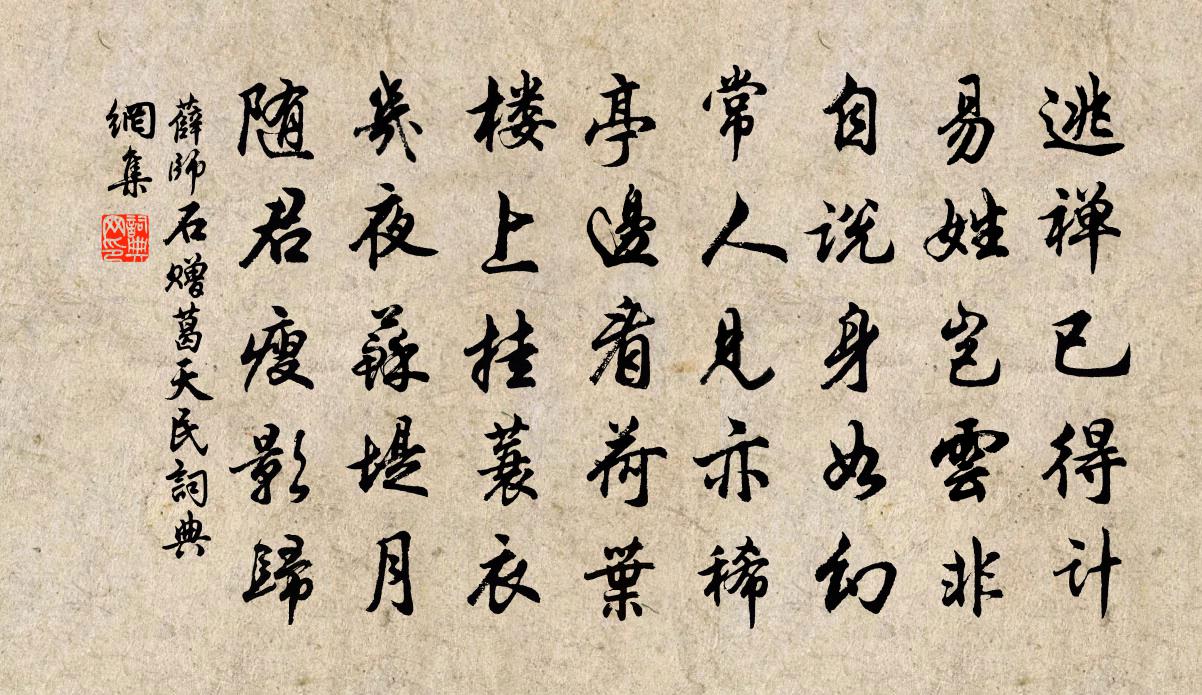 逃禅已得计
易姓岂雲非
自说身如幻
常人见亦稀
亭邊看荷葉
楼上挂蓑衣
幾夜蘇堤月
随君瘦影歸
薛師石赠葛天民詞典
網集
詞典